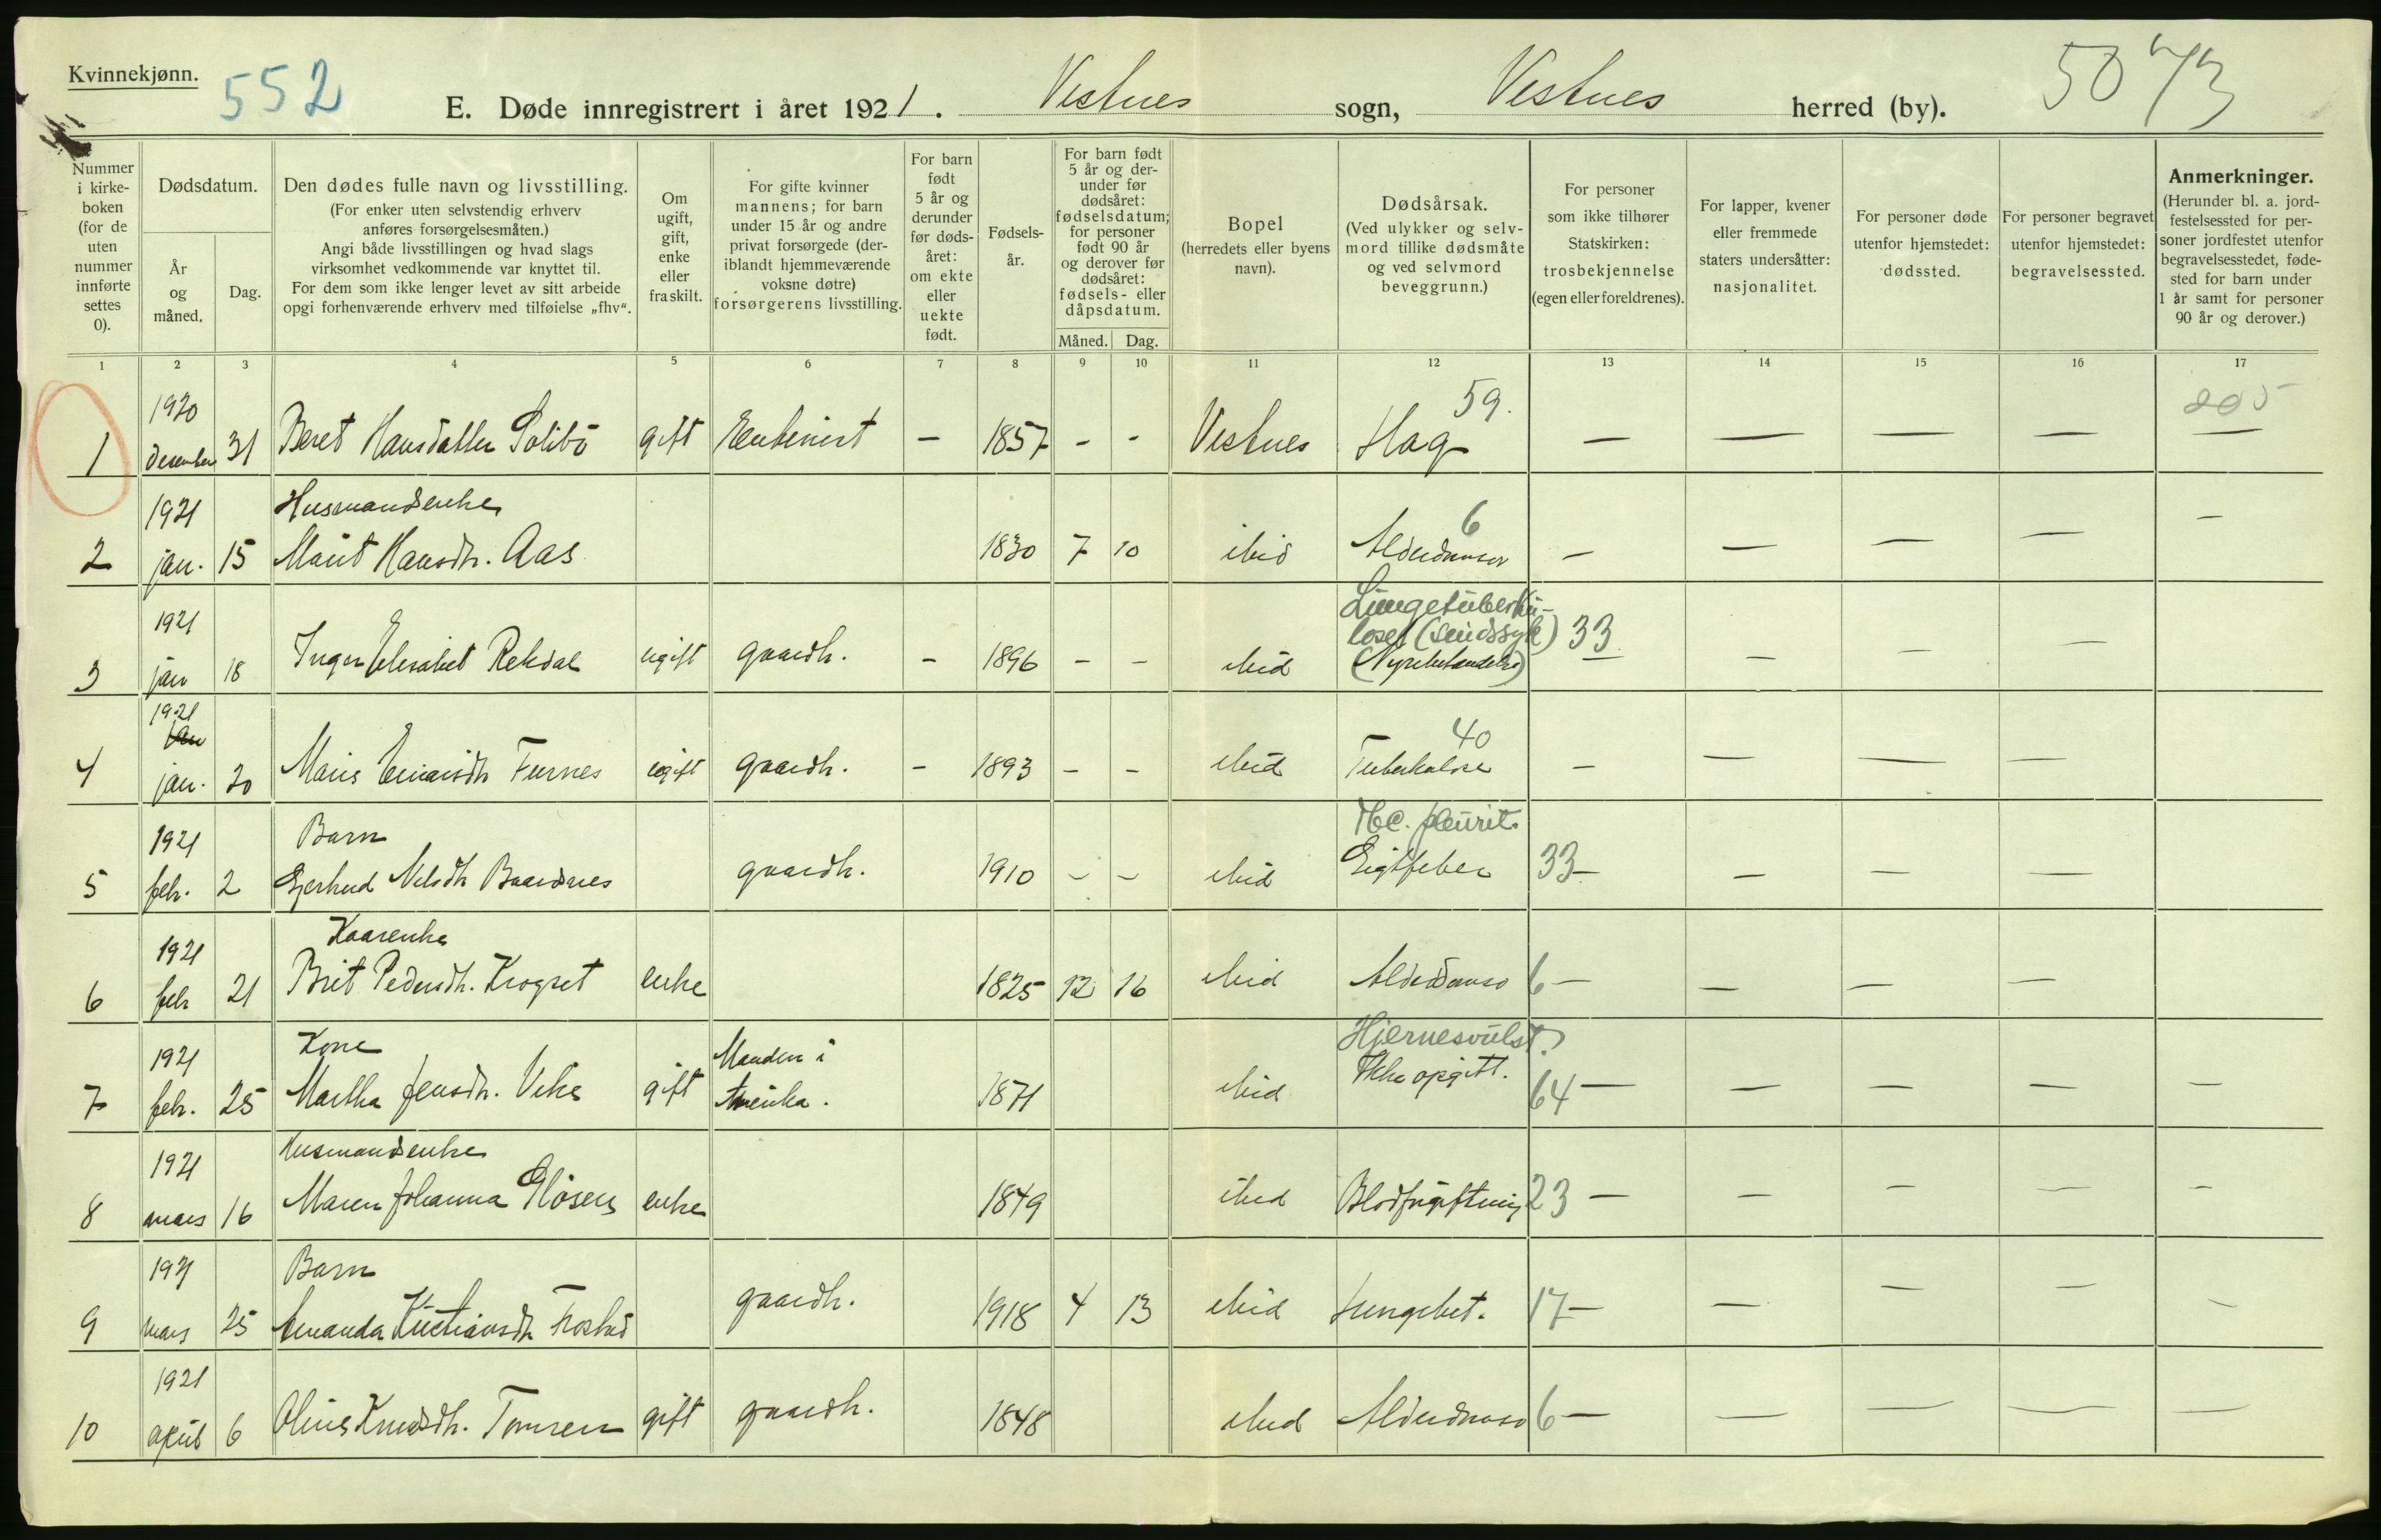 Kvinnekjønn.
552
E. Døde innregistrert i året 1921. Vestnes sogn, Vestnes herred (by).
5073
Nummer i kirke-boken (for de uten nummer innførte settes 0).
Dødsdatum.
År og måned.
Dag.
Den dødes fulle navn og livsstilling.
(For enker uten selvstendig erhverv anføres forsørgelsesmåten.)
Angi både livsstillingen og hvad slags virksomhet vedkommende var knyttet til.
For dem som ikke lenger levet av sitt arbeide opgi forhenværende erhverv med tilføielse „fhv“.
Om ugift, gift, enke eller fraskilt.
For gifte kvinner mannens; for barn under 15 år og andre privat forsørgede (deriblandt hjemmeværende voksne døtre) forsørgerens livsstilling.
For barn født 5 år og derunder før dødsåret: om ekte eller uekte født.
Fødsels-år.
For barn født 5 år og derunder før dødsåret: fødselsdatum; for personer født 90 år og derover før dødsåret: fødsels- eller dåpsdatum.
Måned.
Dag.
Bopel
(herredets eller byens navn).
Dødsårsak.
(Ved ulykker og selvmord tillike dødsmåte og ved selvmord beveggrunn.)
For personer som ikke tilhører Statskirken: trosbekjennelse (egen eller foreldrenes).
For lapper, kvener eller fremmede staters undersåtter: nasjonalitet.
For personer døde utenfor hjemstedet: dødssted.
For personer begravet utenfor hjemstedet: begravelsessted.
Anmerkninger.
(Herunder bl. a. jordfestelsessted for personer jordfestet utenfor begravelsesstedet, fødested for barn under 1 år samt for personer 90 år og derover.)
1 2 3 4 5 6 7 8 9 10 11 12 13 14 15 16 17
1920 59. 205
1 desember 31 Beret Hansdatter Solibö gift – 1857 - - Vestnes Hag — — — — —
1921 Husmandsenke 6
2 jan. 15 Marit Hansdtr. Aas 1830 7 10 ibid Alderdomsv — — — — —
1921 Lungetuberku-
lose (sindssyk) 33
3 jan 18 Inger Elisabet Rekdal ugift gaardbr. – 1896 - - ibid (Nyrebetændelse) — — — —
1921
jan 40
4 jan. 20 Maris Einarsdtr Furnes ugift gaardbr. – 1893 - - ibid Tuberkulose — — — —
1921 Barn Tbc. pleurit.
5 febr. 2 Gjertrud Nilsdtr Baardsnes gaardbr. 1910 - - ibid Gigtfeber 33 — — — —
1921 Kaarenke
6 febr 21 Brit Pedersdtr. Krogset enke 1825 12 16 ibid Alderdomsv 6 — — — —
1921 Kone Manden i Hjernesvulst?
7 febr. 25 Martha Jensdtr. Vike gift Amerika. 1871 ibid Ikke opgitt. 64 — — — — —
1921 Husmandsenke
8 mars 16 Maren Johanna enke 1849 ibid Blodforgiftning 23 — — — — —
1921 Barn
9 mars 25 Amanda Kristiansdtr gaardbr. 1918 4 13 ibid Lungebet. 17 — — — — —
1921
10 april 6 Oline Knudsdtr. Tomren gift gaardbr. 1848 ibid Alderdomsv 6 — — — — —